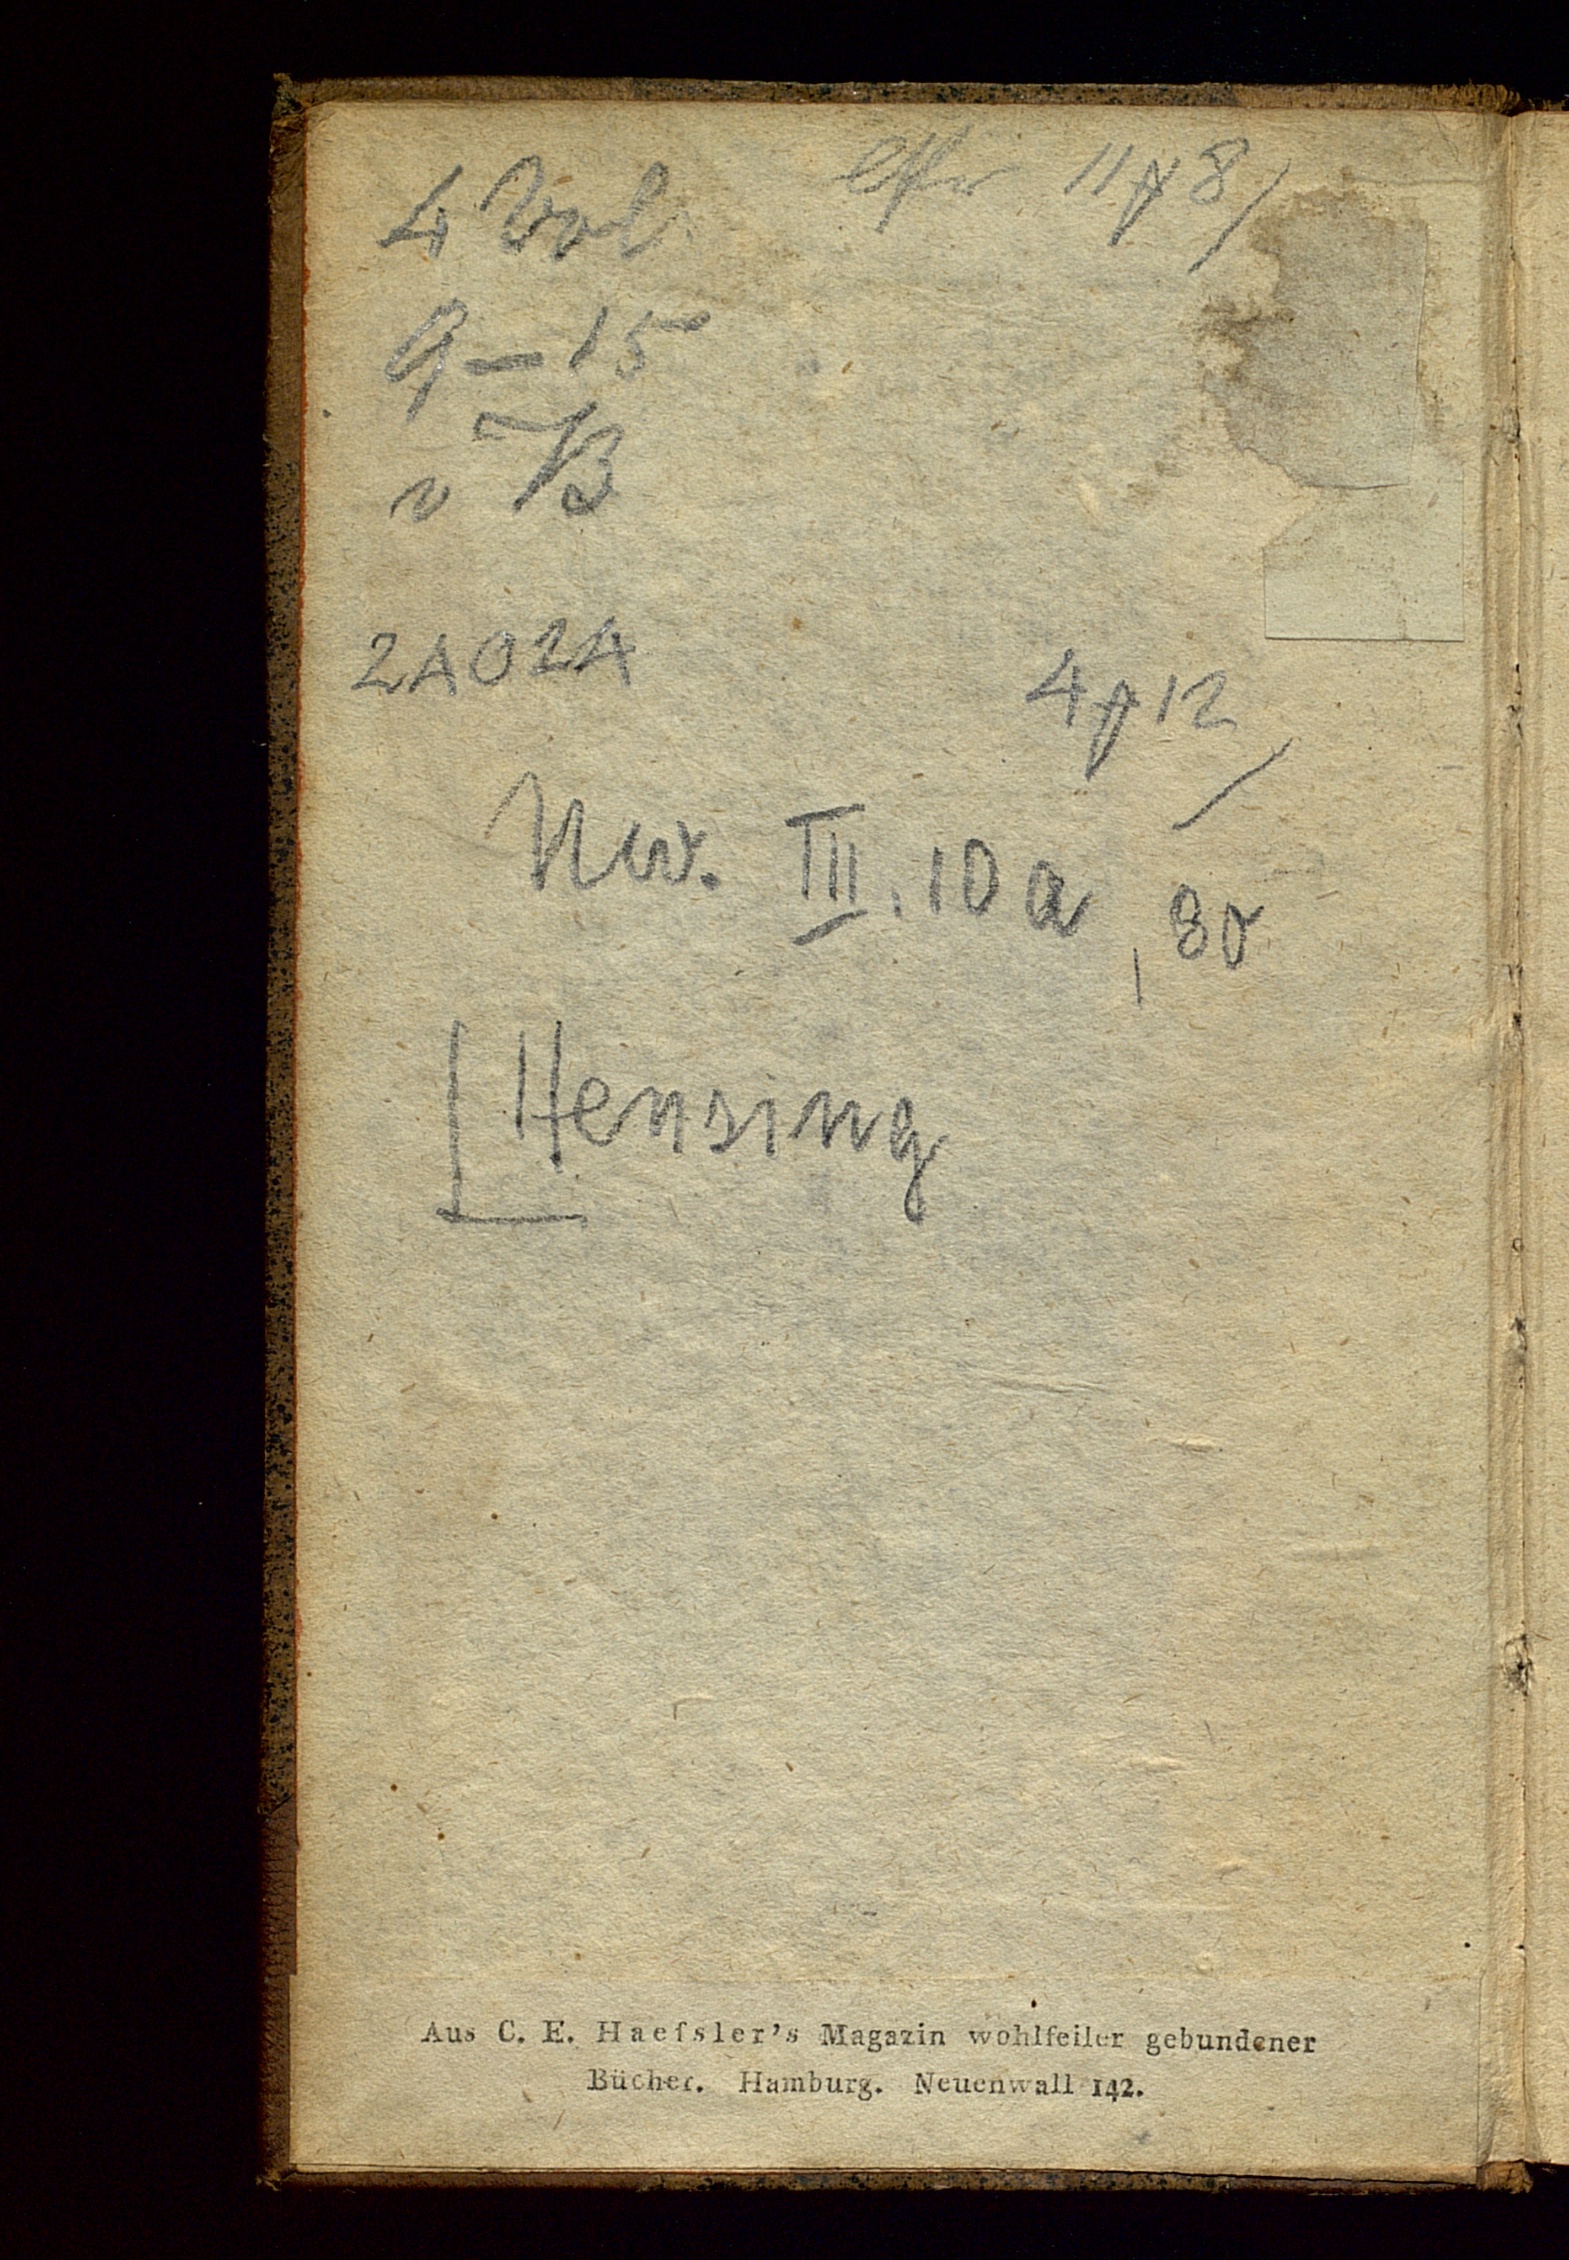 4 Vol.
11 8/
9 — 15
24024
4 12
Nw. III. 10 a, 80
Hensing
Aus C. E. Haeſsler's Magazin wohlfeiler gebundener
Bücher. Hamburg. Neuenwall 142.